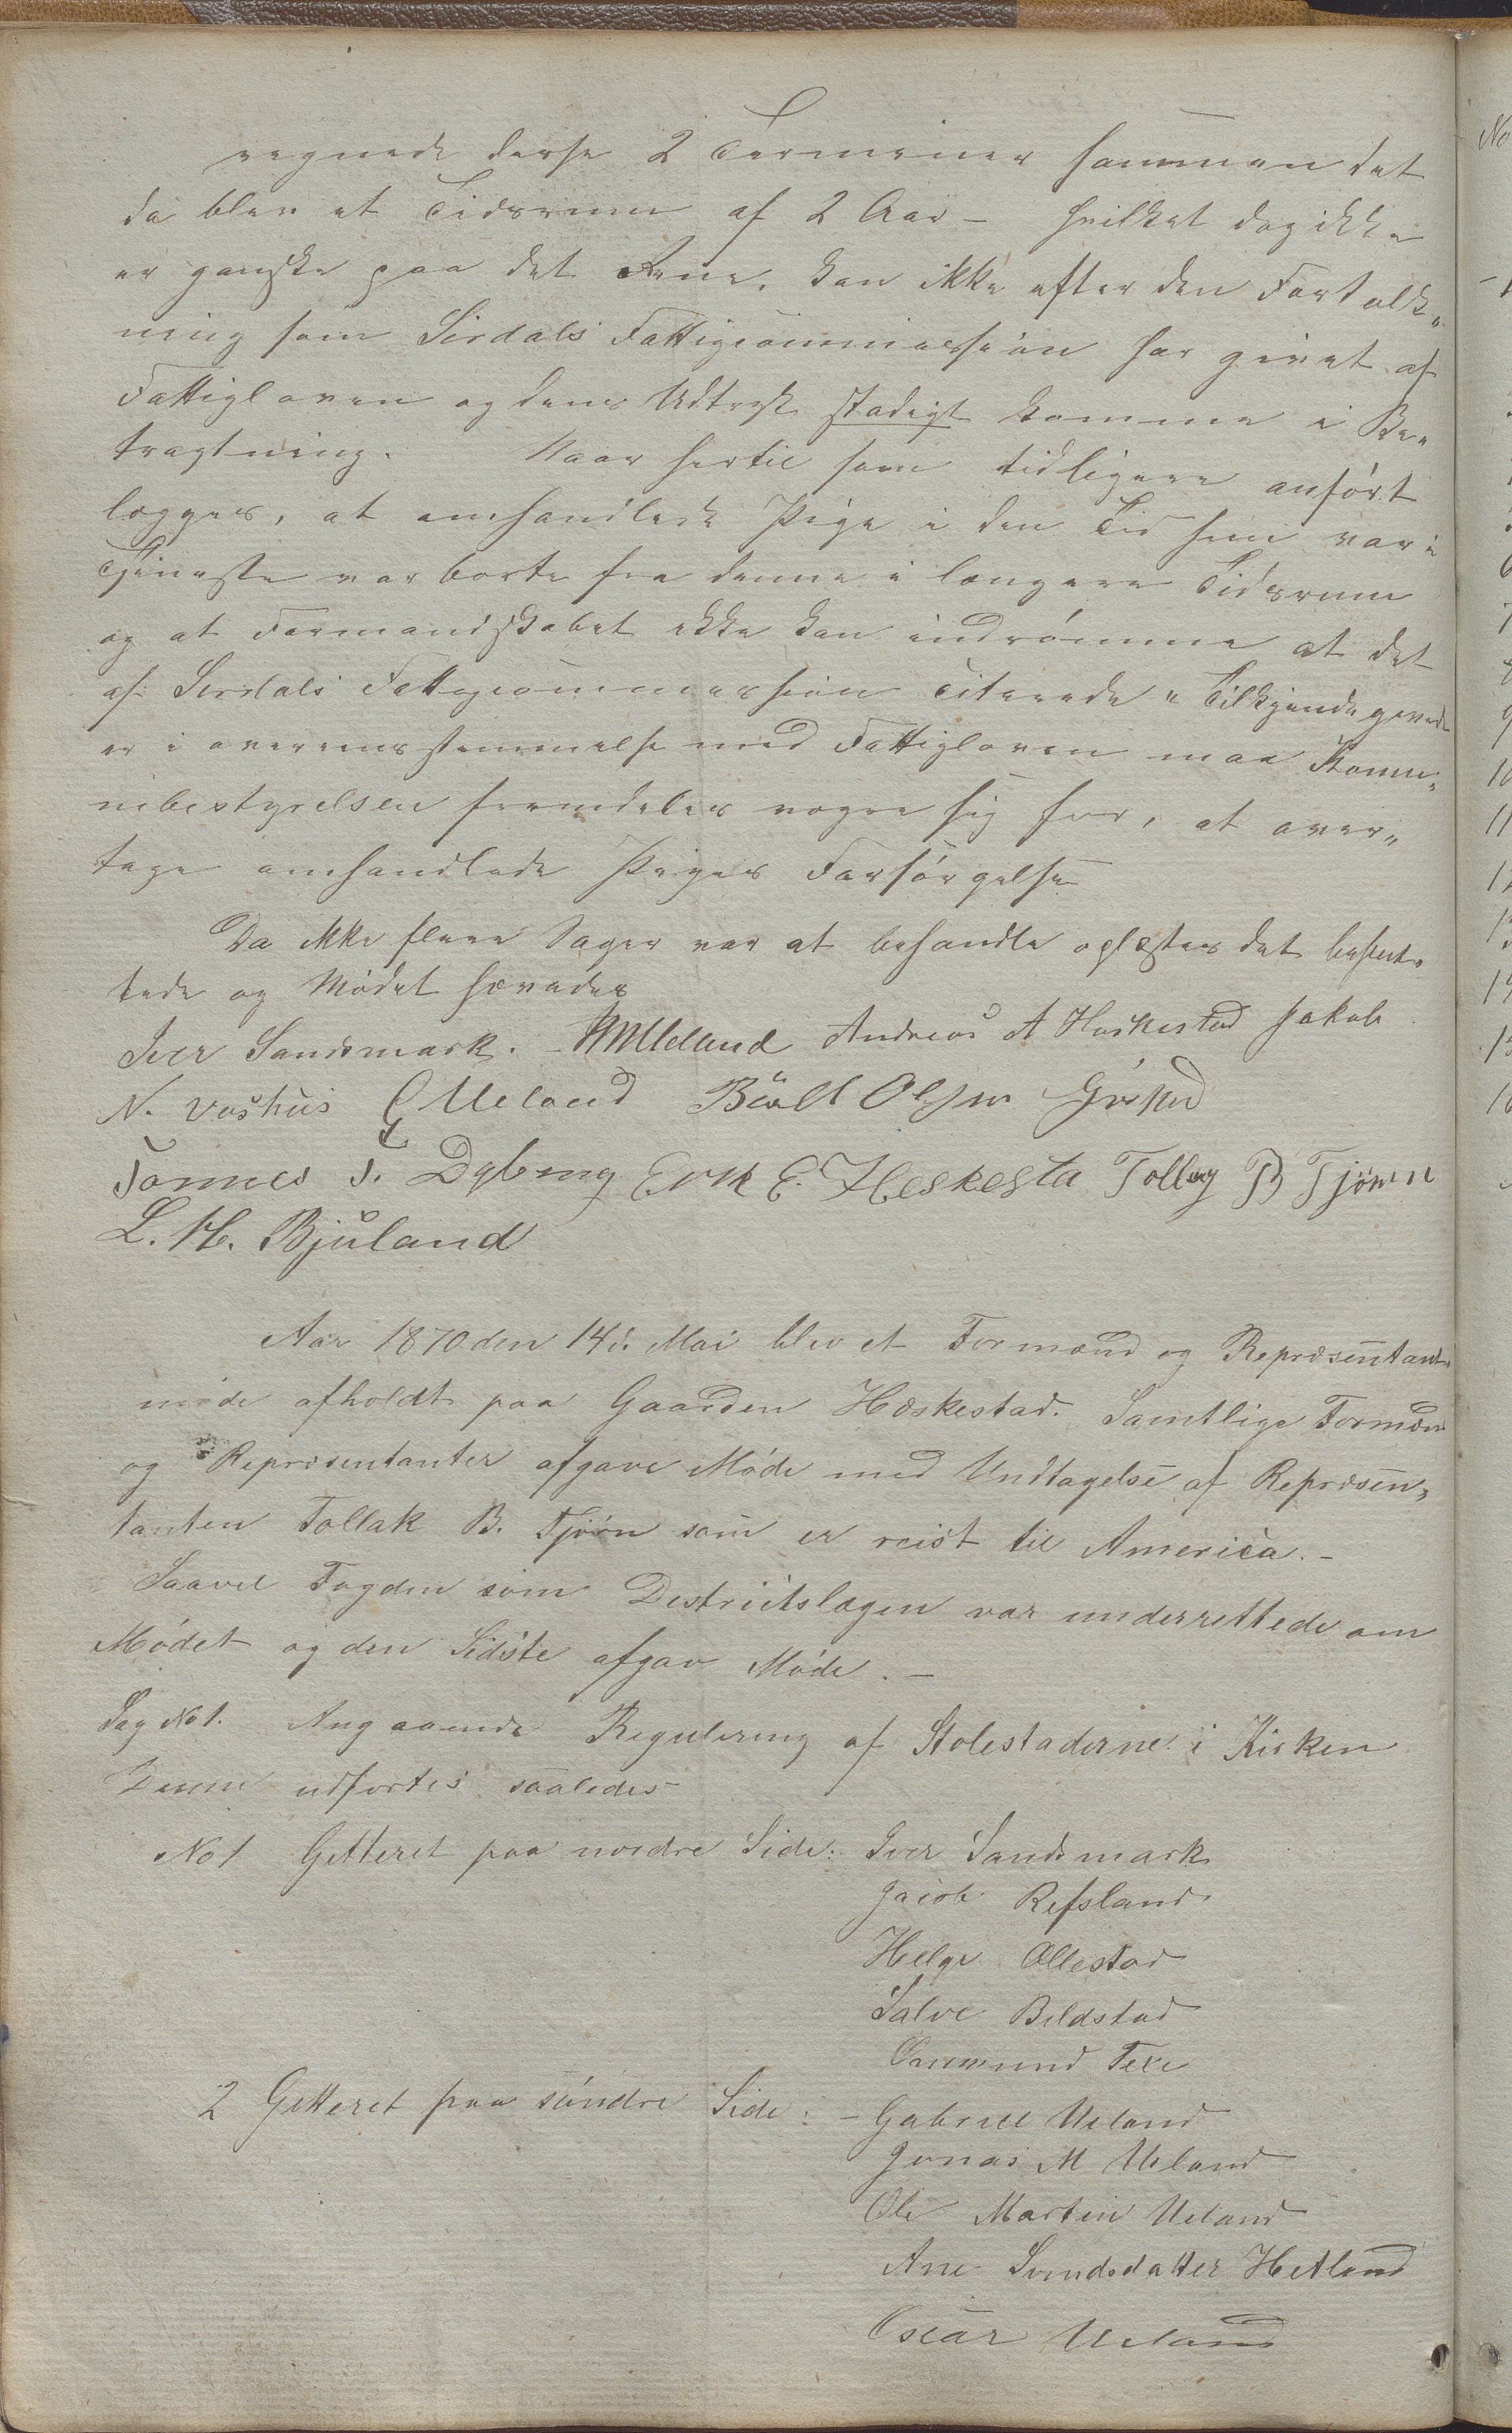 regnede disse 2 Terminer sammen det
da blev et Tidsrum af 2 Aar - hvilket dog ikke
er ganske paa det Rene, kan ikke efter den Fortolk„
ning som Sirdals Fattigcommission har givet af
Fattigloven og dens Udtryk stadigt komme i Be„
tragtning. Naar hertil som tidligere anført
lægges, at omhandlede Pige i den Tid hun var i
Tjeneste var borte fra denne i længere Tidsrum
og at Formandskabet ikke kan indrømme at det
af Sirdals Fattigcommission Citerede „Tilkjendegivende
er i overensstemmelse med Fattigloven maa Komu„
nebestyrelsen fremdeles vægre sig for, at over„
tage omhandlede Piges Forsørgelse
Da ikke flere Sager var at behandle oplæstes det beslut„
tede og Mødet hævedes
Iver Sandsmark. Andreas A Heskestad Jakob
N. Vashus G Ueland Olsen
Tønnes T. Dybing Erik E. Heskesta Tolleg B Tjørn
L. H. Bjuland
Aar 1870 den 14de Mai blev et Formænd og Repræsentant„
møde afholdt paa Gaarden Hæskestad. Samtlige Formæn
og Repræsentanter afgave Møde med Undtagelse af Repræsen„
tanten Tollak B. Tjørn som er reist til America. -
Saavel Fogden som Destrictslægen var underrettede om
Mødet og den Sidste afgav Møde. -
Sag No 1. Angaaende Regulering af Stolestaderne i Kirken
Denne udførtes saaledes
No 1 Gitteret paa nordre Side: Iver Sandsmark
Jacob Refsland
Helge Ollestad
Salve Bildstad
Ommund Texe
2 Gitteret paa søndre Side: - Gabriel Ueland
Jonas M Ueland
Ole Martin Ueland
Ane Svendsdatter Hetland
Oscar Ueland